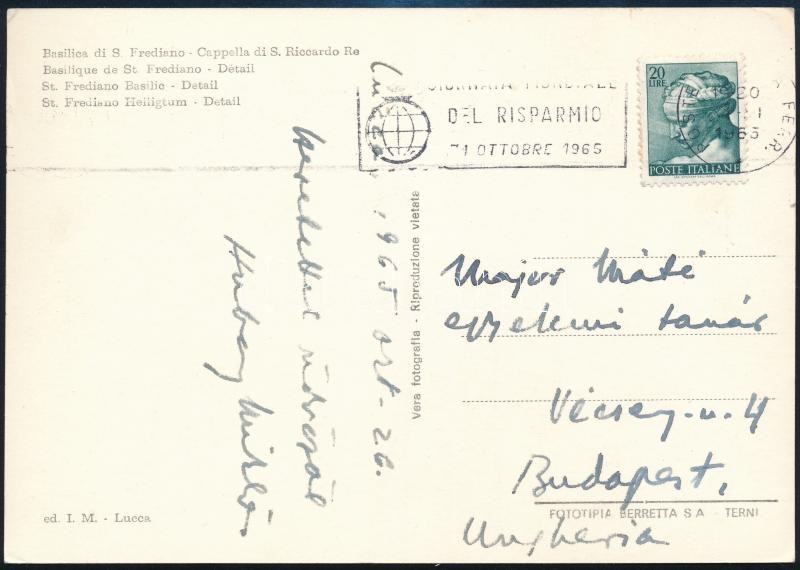 Basilica di S. Frediano - Cappella di S. Riccardo Re
Basilique de St. Frediano - Détail
St. Frediano Basilic - Detail
St. Frediano Heiligtum - Detail
GIORNATA MONDIALE
DEL RISPARMIO
31 OTTOBRE 1965
20
LIRE
POSTE ITALIANE
POSTE
FERR.
1965
1965 okt. 26.
Szeretettel üdvözöl
Hubay Miklós
Vera fotografia - Riproduzione vietata
Major Máté
egyetemi tanár
Vécsey-u. 4
Budapest,
Ungheria
FOTOTIPIA BERRETTA S A - TERNI
ed. I. M. - Lucca